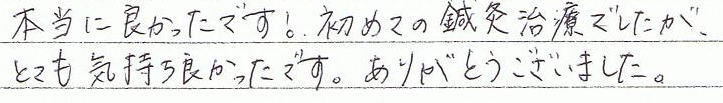 本当に良かったです！.初めての鍼灸治療でしたが、
とても気持ち良かったです。ありがとうございました。